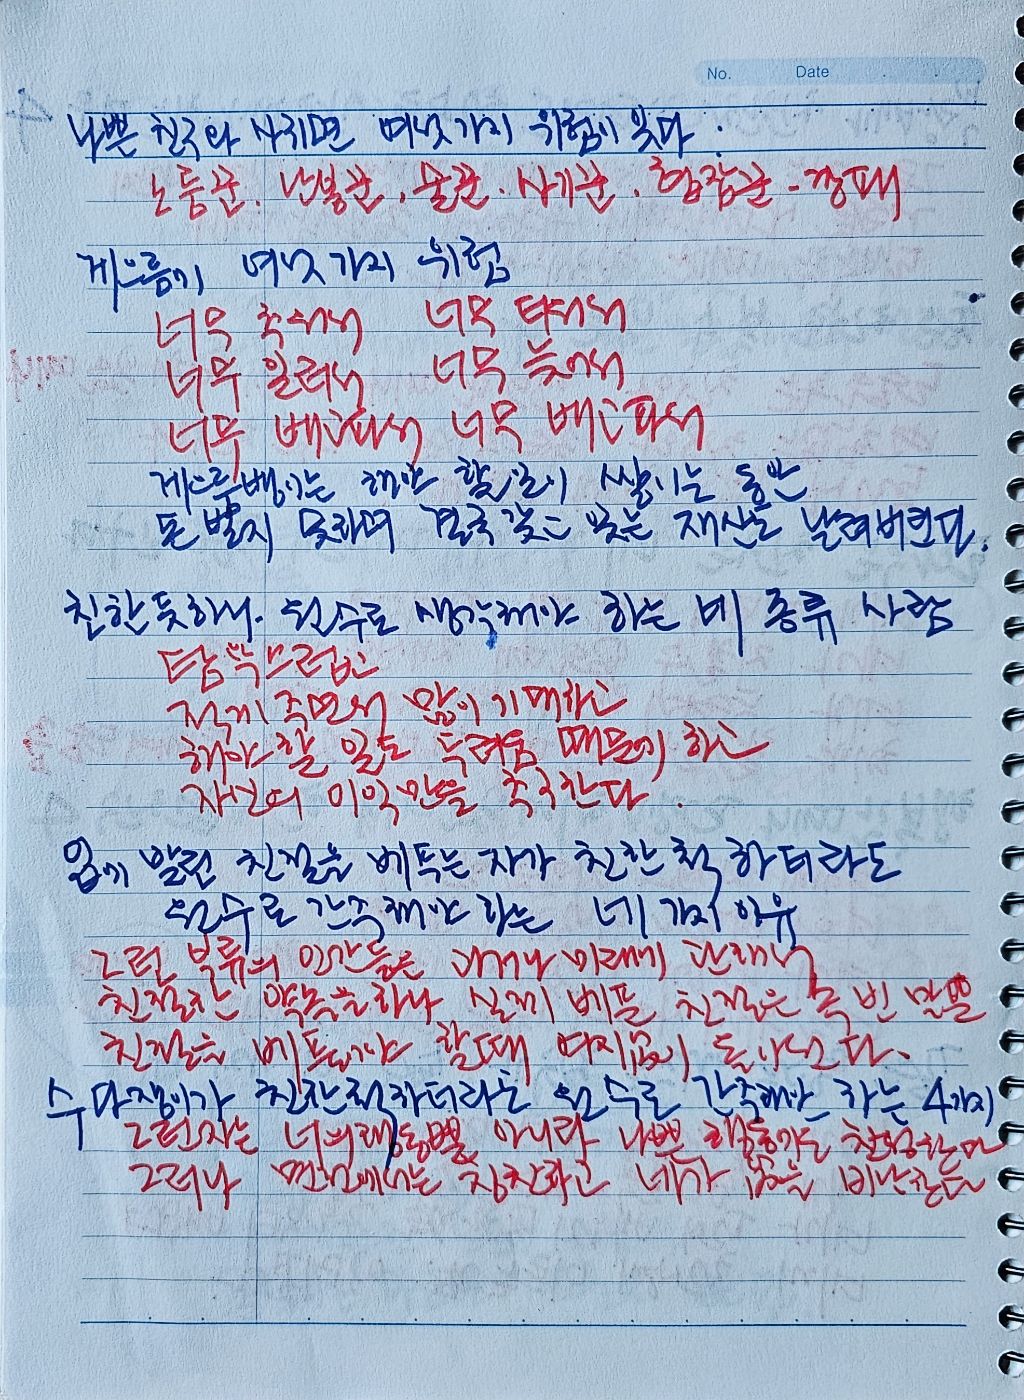 No. Date
나쁜 친구와 사귀면 여섯가지 위험이 있다.
노름꾼. 난봉꾼. 술꾼. 사기꾼. 협잡꾼. 깡패
게으름이 여섯가지 위험
너무 추워서 너무 더워서
너무 일러서 너무 늦어서
너무 배고파서 너무 배고파서
게으름뱅이는 해야 할 일이 쌓이는 동안
돈 벌지 못하며 결국 갖고 있는 재산도 날려버린다.
친한 듯하나. 원수로 생각해야 하는 네 종류 사람
탐욕스럽고
적게 주면서 많이 기대하고
해야 할 일도 두려움 때문에 하고
자신의 이익만을 추구한다.
입에 발린 친절을 베푸는 자가 친한 척 하더라도
원수로 간주해야 하는 네가지 이유
그런 부류의 인간들은 과거나 미래에 관해서
친절한 약속을 하나 실제 베풀 친절은 속 빈 말뿐
친절을 베풀어야 할 때 여지없이 돌아선다.
수다쟁이가 친한척하더라도 원수로 간주해야 하는 4가지
그런자는 너의 행동뿐 아니라 나쁜 행동까도 찬성한다
그러나 면전에서는 칭찬하고 네가 없을 비난한다